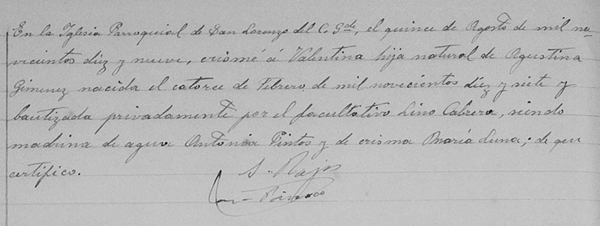 En la Iglesia Parroquial de San Lorenzo del C. Gde, el quince de Agosto de mil no-
vicientos diez y nueve, crismé á Valentina hija natural de Agustina
Gimenez nacida el catorce de Febrero de mil novecientos diez y siete y
bautizada privadamente por el facultativo Lino Cabrera, siendo
madrina de agua Antonia Pintos y de crisma María Luna; de que
certifico.
S. Rojas
Párroco